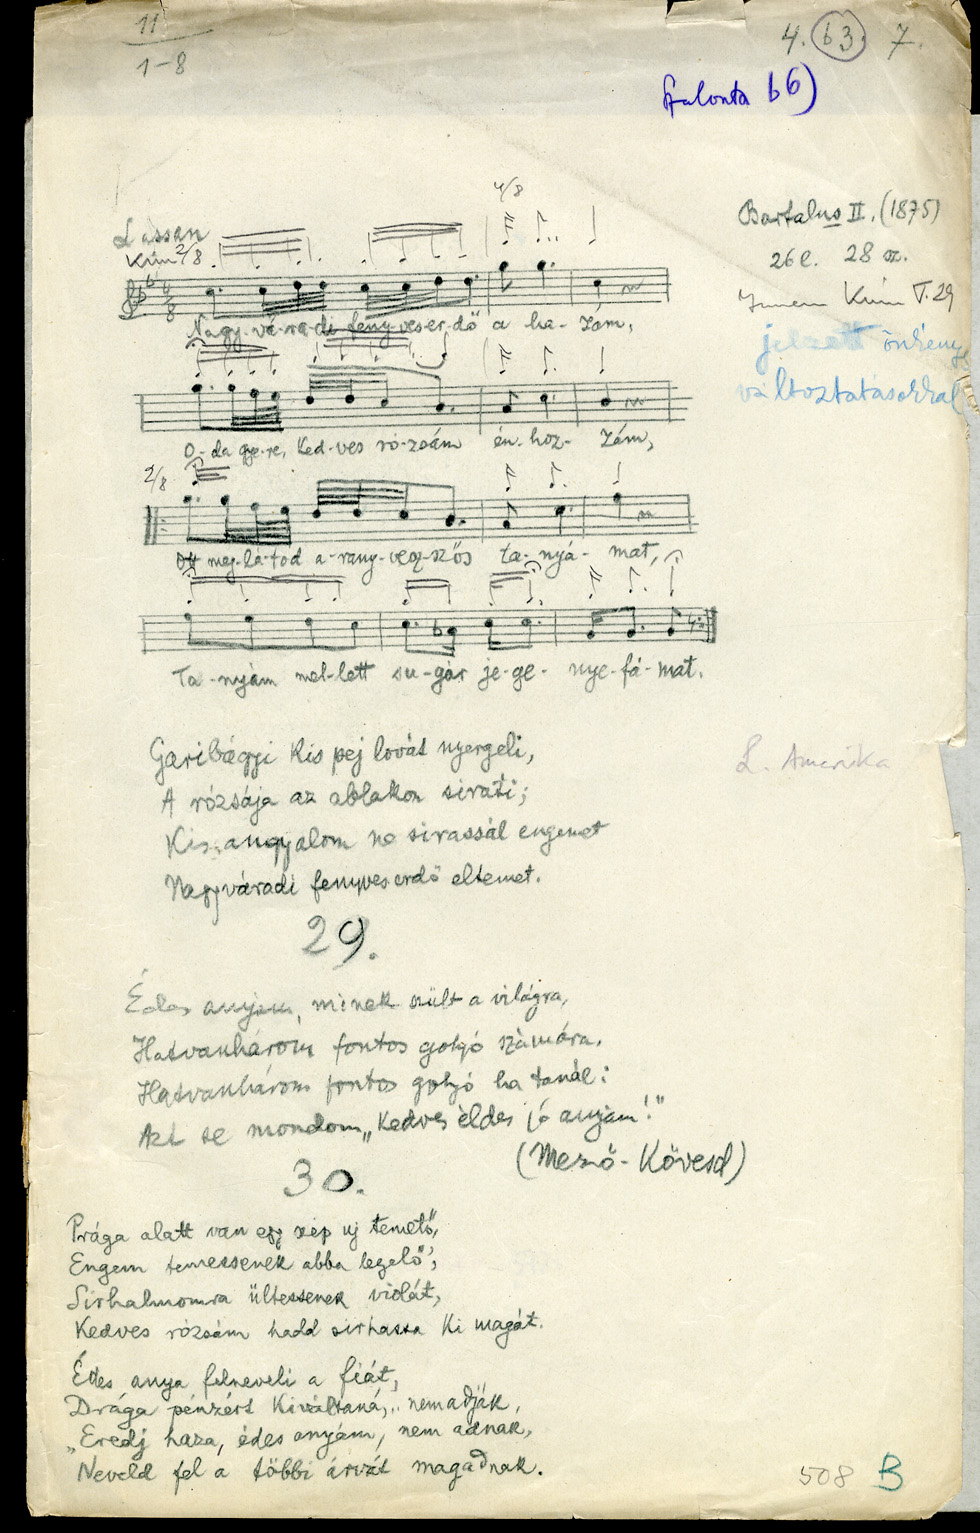 11
1-8
4. 63. 7.
Szalonta 66)
4/8
Lassan
Krim 2/8.
Bartalus II. (1875)
26 l. 28 sz.
Krim T. 29
jelzett önkény
változtatásokkal
Nagy-vá-ra-di feny-ves-er-dő a ha-zám,
O-da gye-re, Ked-ves ró-zsám én hoz-zám,
2/8
Ott meg-lá-tod a-rany-vesz-szős ta-nyá-mat,
Ta-nyám mel-lett su-gár je-ge-nye-fá-mat.
Garibágyi Kis pej lovát nyergeli,
A rózsája az ablakon siratí;
Kis angyalom ne sirassál engemet
Nagyváradi fenyves erdő eltemet.
L. Amerika
29.
Édes anyám, minek szült a világra,
Hatvanhárom fontos golyó számára.
Hatvanhárom fontos golyó ha tanál:
Azt se mondom „Kedves éldes jó anyám!"
(Mező-Kövesd)
30.
Prága alatt van egy szép uj temető,
Engem temessenek abba legelő";
Sirhalmomra ültessenek violát,
Kedves rózsám hadd sirhassa Ki magát.
Édes anya felneveli a fiát,
Drága pénzért Kiváltaná, nem adják,
„Eredj haza, édes anyám, nem adnak,
Neveld fel a többi árvát magadnak.
508 B